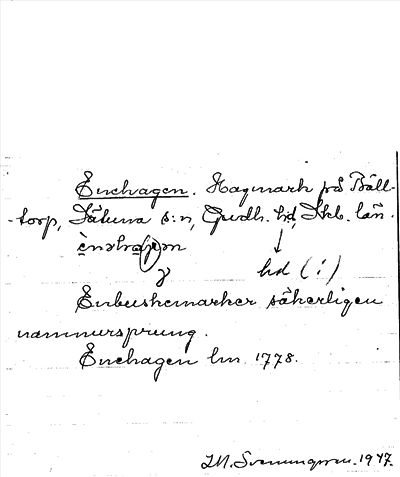 Enehagen. Hagmark på Bäll-
-torp, Sätuna s:n, Gudh. hd, Skb. län.
ènəhagən
γ hd (!)
Enbuskemarker säkerligen
namnursprung.
Enehagen lm 1778.
1947.